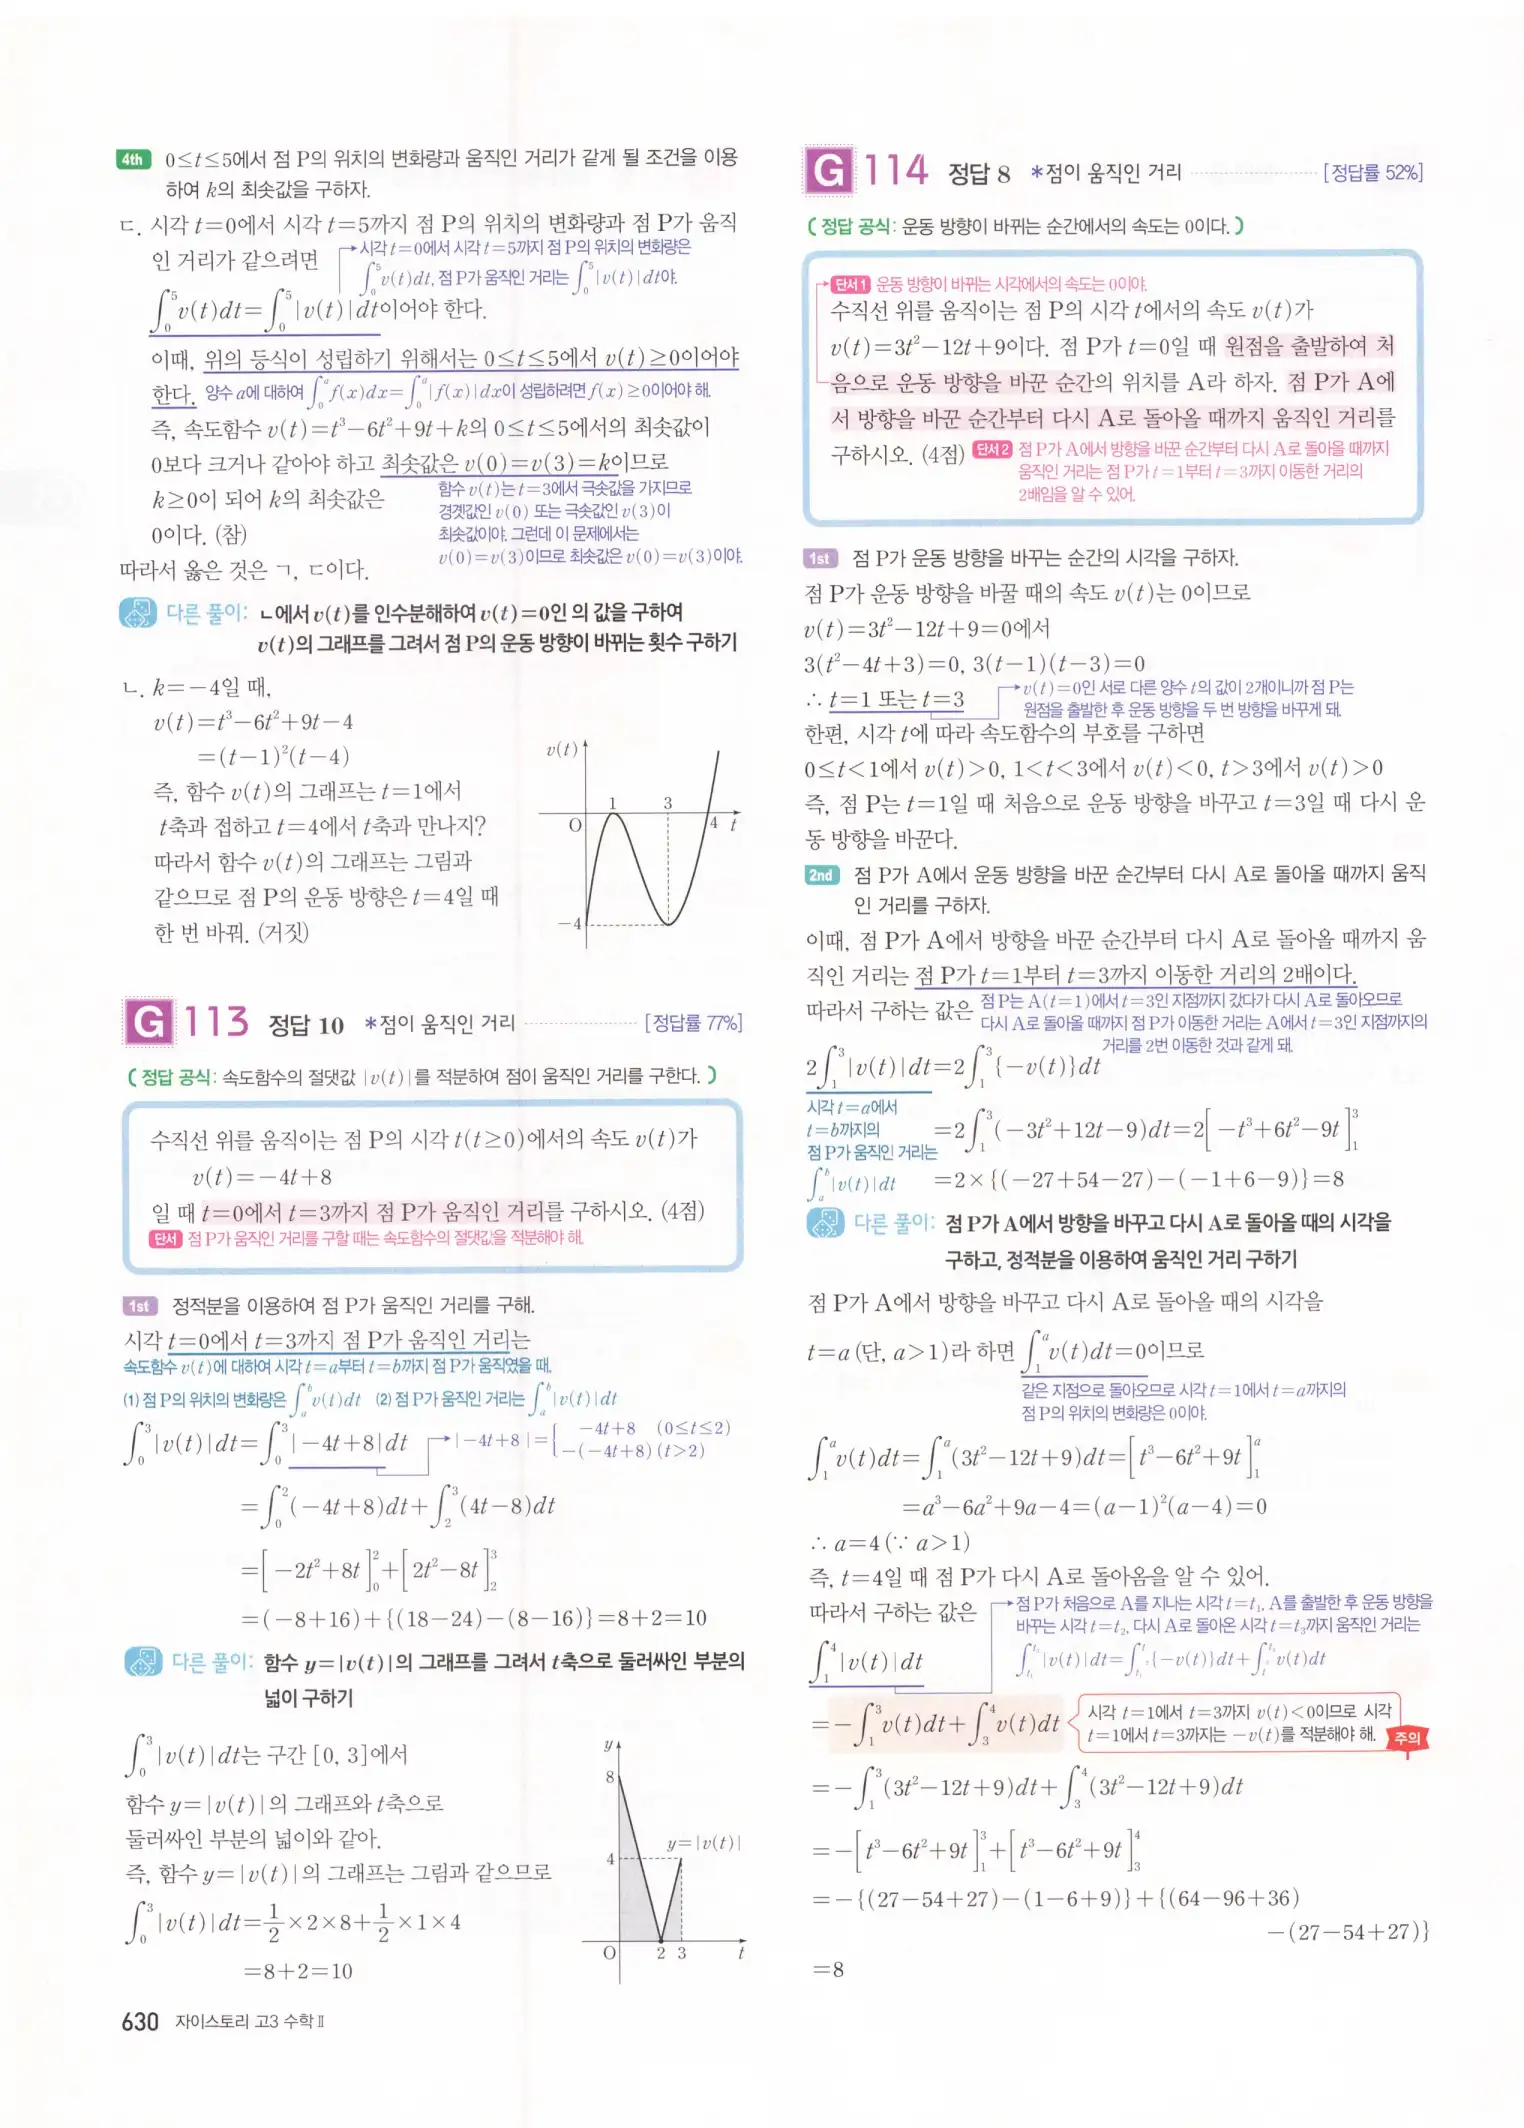 4th 0≤t≤5에서 점 P의 위치의 변화량과 움직인 거리가 같게 될 조건을 이용
하여 k의 최솟값을 구하자.
ㄷ. 시각 t=0에서 시각 t=5까지 점 P의 위치의 변화량과 점 P가 움직
인 거리가 같으려면
시각 t=0에서 시각 t=5까지 점 P의 위치의 변화량은
∫₀⁵v(t)dt, 점 P가 움직인 거리는 ∫₀⁵|v(t)|dt야.
∫₀⁵v(t)dt=∫₀⁵|v(t)|dt이어야 한다.
이때, 위의 등식이 성립하기 위해서는 0≤t≤5에서 v(t)≥0이어야
한다. 양수 a에 대하여 ∫₀ᵃf(x)dx=∫₀ᵃ|f(x)|dx이 성립하려면 f(x)≥0이어야 해.
즉, 속도함수 v(t)=t³-6t²+9t+k의 0≤t≤5에서의 최솟값이
0보다 크거나 같아야 하고 최솟값은 v(0)=v(3)=k이므로
k≥0이 되어 k의 최솟값은
0이다. (참)
함수 v(t)는 t=3에서 극솟값을 가지므로
경곗값인 v(0) 또는 극솟값인 v(3)이
최솟값이야. 그런데 이 문제에서는
v(0)=v(3)이므로 최솟값은 v(0)=v(3)이야.
따라서 옳은 것은 ㄱ, ㄷ이다.
다른 풀이: ㄴ에서 v(t)를 인수분해하여 v(t)=0인 의 값을 구하여
v(t)의 그래프를 그려서 점 P의 운동 방향이 바뀌는 횟수 구하기
ㄴ. k=-4일 때,
v(t)=t³-6t²+9t-4
=(t-1)²(t-4)
즉, 함수 v(t)의 그래프는 t=1에서
t축과 접하고 t=4에서 t축과 만나지?
따라서 함수 v(t)의 그래프는 그림과
같으므로 점 P의 운동 방향은 t=4일 때
한 번 바뀌. (거짓)
v(t)
1 3
O 4 t
-4
G 113 정답 10 *점이 움직인 거리 [정답률 77%]
(정답 공식: 속도함수의 절댓값 |v(t)|를 적분하여 점이 움직인 거리를 구한다.)
수직선 위를 움직이는 점 P의 시각 t(t≥0)에서의 속도 v(t)가
v(t)=-4t+8
일 때 t=0에서 t=3까지 점 P가 움직인 거리를 구하시오. (4점)
단서 점 P가 움직인 거리를 구할 때는 속도함수의 절댓값을 적분해야 해.
1st 정적분을 이용하여 점 P가 움직인 거리를 구해.
시각 t=0에서 t=3까지 점 P가 움직인 거리는
속도함수 v(t)에 대하여 시각 t=a부터 t=b까지 점 P가 움직였을 때,
(1) 점 P의 위치의 변화량은 ∫ₐᵇv(t)dt (2) 점 P가 움직인 거리는 ∫ₐᵇ|v(t)|dt
∫₀³|v(t)|dt=∫₀³|-4t+8|dt
|-4t+8|={ -4t+8 (0≤t≤2)
-(-4t+8) (t>2)
=∫₀²(-4t+8)dt+∫₂³(4t-8)dt
=[-2t²+8t]₀²+[2t²-8t]₂³
=(-8+16)+{(18-24)-(8-16)}=8+2=10
다른 풀이: 함수 y=|v(t)|의 그래프를 그려서 t축으로 둘러싸인 부분의
넓이 구하기
∫₀³|v(t)|dt는 구간 [0, 3]에서
함수 y=|v(t)|의 그래프와 t축으로
둘러싸인 부분의 넓이와 같아.
즉, 함수 y=|v(t)|의 그래프는 그림과 같으므로
∫₀³|v(t)|dt=1/2×2×8+1/2×1×4
=8+2=10
y
8
y=|v(t)|
4
O 2 3 t
630 자이스토리 고3 수학Ⅱ
G 114 정답 8 *점이 움직인 거리 [정답률 52%]
(정답 공식: 운동 방향이 바뀌는 순간에서의 속도는 0이다.)
단서1 운동 방향이 바뀌는 시각에서의 속도는 0이야.
수직선 위를 움직이는 점 P의 시각 t에서의 속도 v(t)가
v(t)=3t²-12t+9이다. 점 P가 t=0일 때 원점을 출발하여 처
음으로 운동 방향을 바꾼 순간의 위치를 A라 하자. 점 P가 A에
서 방향을 바꾼 순간부터 다시 A로 돌아올 때까지 움직인 거리를
구하시오. (4점) 단서2 점 P가 A에서 방향을 바꾼 순간부터 다시 A로 돌아올 때까지
움직인 거리는 점 P가 t=1부터 t=3까지 이동한 거리의
2배임을 알 수 있어.
1st 점 P가 운동 방향을 바꾸는 순간의 시각을 구하자.
점 P가 운동 방향을 바꿀 때의 속도 v(t)는 0이므로
v(t)=3t²-12t+9=0에서
3(t²-4t+3)=0, 3(t-1)(t-3)=0
∴ t=1 또는 t=3
v(t)=0인 서로 다른 양수 t의 값이 2개이니까 점 P는
원점을 출발한 후 운동 방향을 두 번 방향을 바꾸게 돼.
한편, 시각 t에 따라 속도함수의 부호를 구하면
0≤t<1에서 v(t)>0, 1<t<3에서 v(t)<0, t>3에서 v(t)>0
즉, 점 P는 t=1일 때 처음으로 운동 방향을 바꾸고 t=3일 때 다시 운
동 방향을 바꾼다.
2nd 점 P가 A에서 운동 방향을 바꾼 순간부터 다시 A로 돌아올 때까지 움직
인 거리를 구하자.
이때, 점 P가 A에서 방향을 바꾼 순간부터 다시 A로 돌아올 때까지 움
직인 거리는 점 P가 t=1부터 t=3까지 이동한 거리의 2배이다.
따라서 구하는 값은
점 P는 A(t=1)에서 t=3인 지점까지 갔다가 다시 A로 돌아오므로
다시 A로 돌아올 때까지 점 P가 이동한 거리는 A에서 t=3인 지점까지의
거리를 2번 이동한 것과 같게 돼.
2∫₁³|v(t)|dt=2∫₁³{-v(t)}dt
시각 t=a에서
t=b까지의
점 P가 움직인 거리는
∫ₐᵇ|v(t)|dt
=2∫₁³(-3t²+12t-9)dt=2[-t³+6t²-9t]₁³
=2×{(-27+54-27)-(-1+6-9)}=8
다른 풀이: 점 P가 A에서 방향을 바꾸고 다시 A로 돌아올 때의 시각을
구하고, 정적분을 이용하여 움직인 거리 구하기
점 P가 A에서 방향을 바꾸고 다시 A로 돌아올 때의 시각을
t=a (단, a>1)라 하면 ∫₁ᵃv(t)dt=0이므로
같은 지점으로 돌아오므로 시각 t=1에서 t=a까지의
점 P의 위치의 변화량은 0이야.
∫₁ᵃv(t)dt=∫₁ᵃ(3t²-12t+9)dt=[t³-6t²+9t]₁ᵃ
=a³-6a²+9a-4=(a-1)²(a-4)=0
∴ a=4 (∵ a>1)
즉, t=4일 때 점 P가 다시 A로 돌아옴을 알 수 있어.
따라서 구하는 값은
점 P가 처음으로 A를 지나는 시각 t=t₁, A를 출발한 후 운동 방향을
바꾸는 시각 t=t₂, 다시 A로 돌아온 시각 t=t₃까지 움직인 거리는
|v(t)|dt= {-v(t)}dt+ v(t)dt
∫₁⁴|v(t)|dt
=-∫₁³v(t)dt+∫₃⁴v(t)dt
시각 t=1에서 t=3까지 v(t)<0이므로 시각
t=1에서 t=3까지는 -v(t)를 적분해야 해. 주의
=-∫₁³(3t²-12t+9)dt+∫₃⁴(3t²-12t+9)dt
=-[t³-6t²+9t]₁³+[t³-6t²+9t]₃⁴
=-{(27-54+27)-(1-6+9)}+{(64-96+36)
-(27-54+27)}
=8